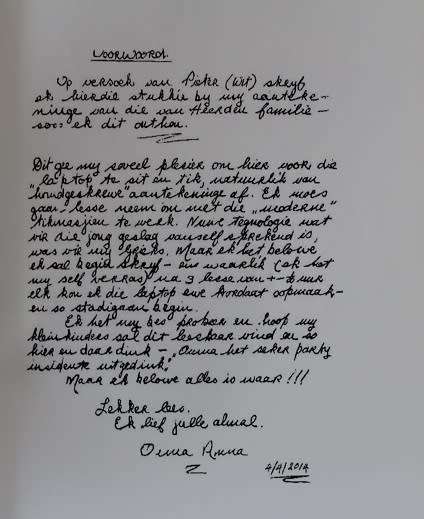 VOORWOORD.
Op versoek van Pieter (Wit) skryf
ek hierdie stukkie by my aanteke-
ninge van die van Heerden familie –
soos ek dit onthou.
Dit ge my soveel plesier om hier voor die
"laptop" te sit en tik, natuurlik van
"handgeskrewe" aantekeninge af. Ek moes
gaan lesse neem om met die "moderne"
tikmasjien te werk. Nuwe tegnologie wat
vir die jong geslag vanself sprekend is,
was vir my Maar ek het belowe
ek sal begin skryf – en waarlik (ek het
my self verras) na 3 lesse van +- ½ uur
elk kon ek die leptop ewe oopmaak –
en so stadigaan begin.
Ek het my bes probeer en hoop my
kleinkinders sal dit leesbaar vind en so
hier en daar dink – "Ouma het seker party
insidente uitgedink,"
Maar ek belowe alles is waar!!!
Lekker lees.
Ek lief julle almal.
Ouma Anna
4/4/2014